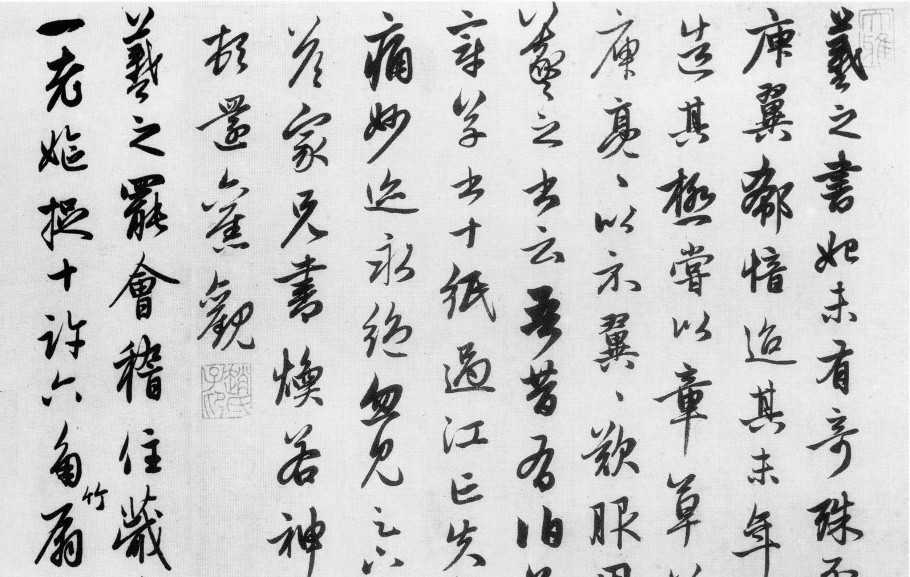 羲之書始未有奇殊不
庾翼郗愔迨其末年
造其極嘗以章草
庾亮〻以示翼〻歎服因
羲之書云吾昔有伯
章草書十紙過江亡失
痛妙迹永絕忽見足下
答家兄書煥若神
頓還舊觀
羲之罷會稽住蕺
一老嫗捉十許六角竹扇